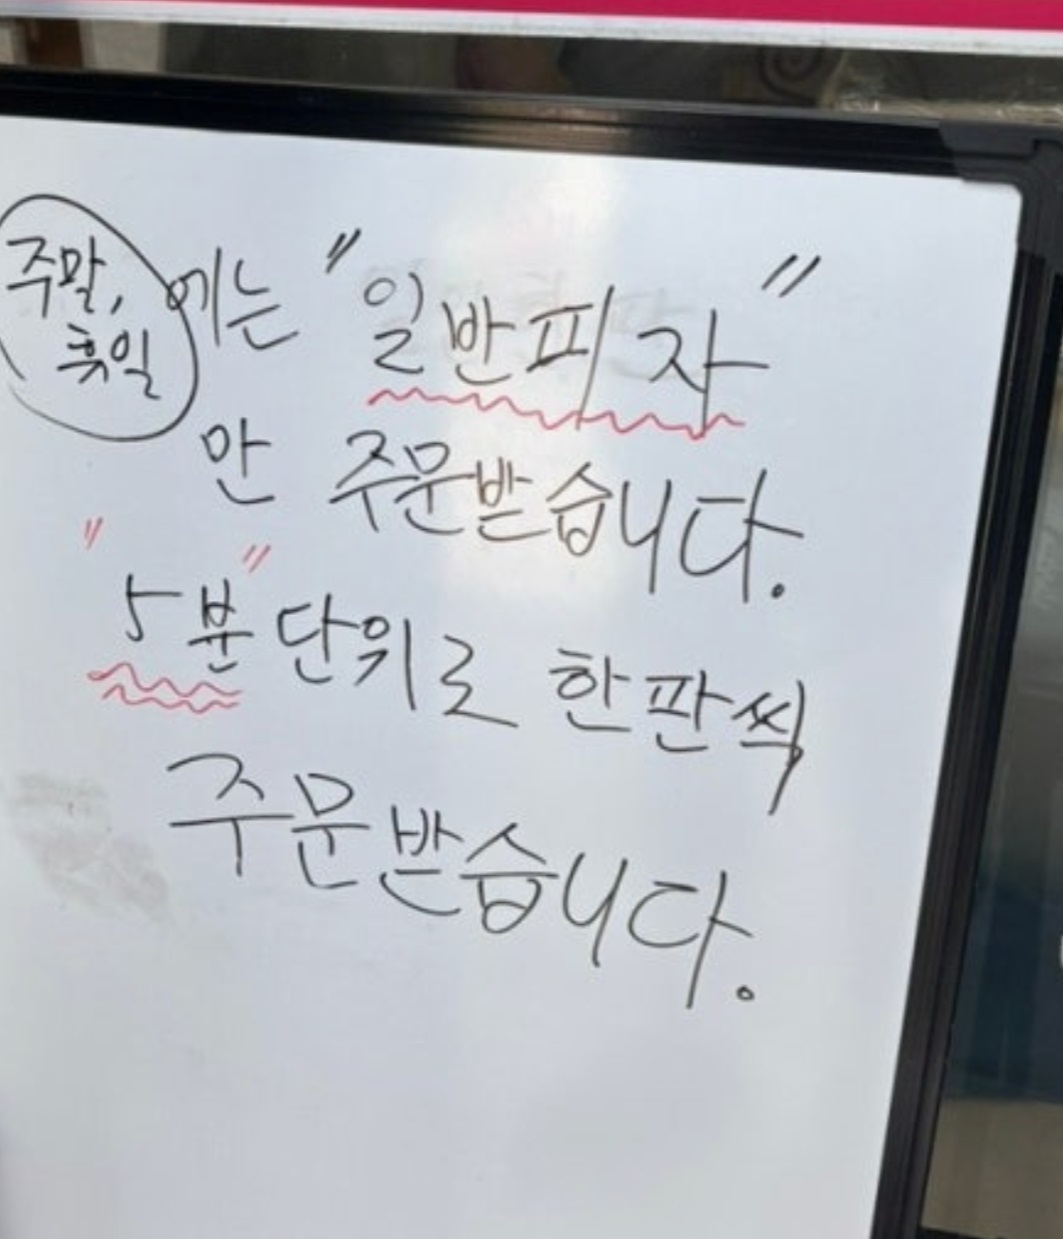 주말, 휴일에는 "일반피자"
만 주문받습니다.
"5분" 단위로 한판씩
주문받습니다.